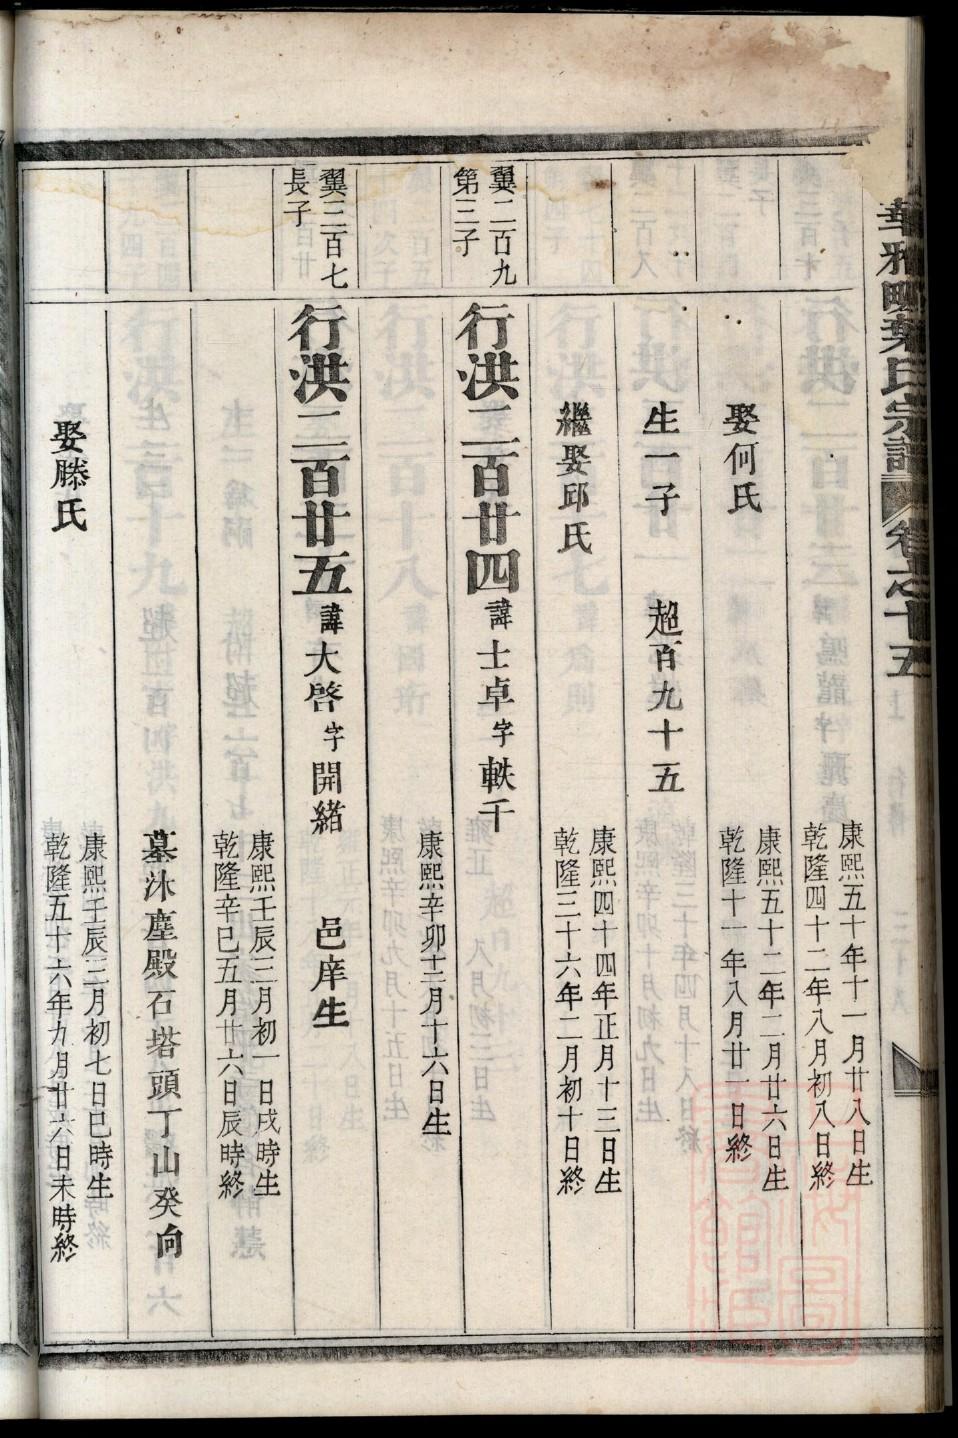 華雅畈葉氏宗譜 卷之十五
康熙五十年十一月廿八日生
乾隆四十二年八月初八日終
娶何氏
康熙五十二年二月廿六日生
乾隆十一年八月廿一日終
生一子 超百九十五
繼娶邱氏
康熙四十四年正月十三日生
乾隆三十六年二月初十日終
翼二百九
第三子
行洪二百廿四 諱士卓 字軼千
康熙辛卯十二月十六日生
翼二百七
長子
行洪二百廿五 諱大啓 字開緒 邑庠生
康熙壬辰三月初一日戌時生
乾隆辛巳五月廿六日辰時終
墓沐塵殿石塔頭丁山癸向
娶滕氏
康熙壬辰三月初七日巳時生
乾隆五十六年九月廿六日未時終